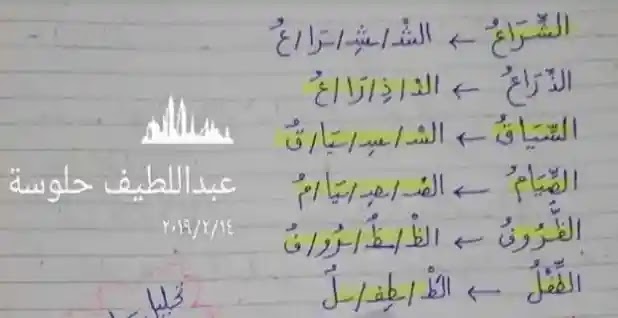 الشِّرَاعُ ← الشْـ/ـشِـ/ـرَا/عُ
الذِّرَاعُ ← الذْ/ذِ/رَا/عُ
السِّيَاقُ ← السْـ/ـسِـ/ـيَا/قُ
الصِّيَامُ ← الصْـ/ـصِـ/ـيَا/مُ
الظُّرُوفُ ← الظْـ/ـظُـ/ـرُو/فُ
الطِّفْلُ ← الطْـ/ـطِفـ/ـلُ
عبداللطيف حلوسة
٢٠١٩/٢/١٤
تحليل